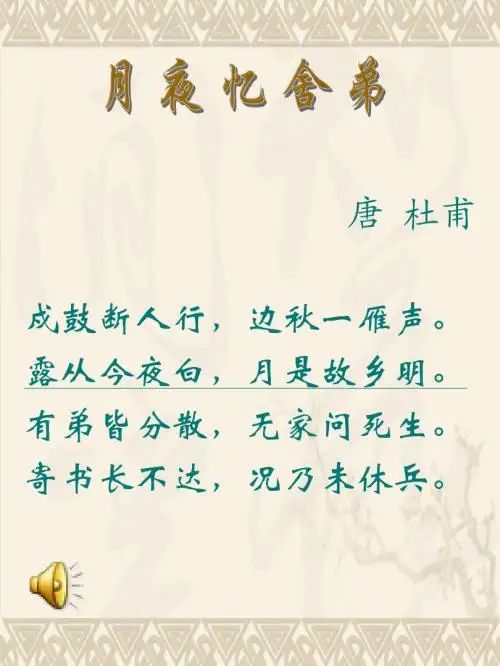 月夜忆舍弟
唐 杜甫
戍鼓断人行，边秋一雁声。
露从今夜白，月是故乡明。
有弟皆分散，无家问死生。
寄书长不达，况乃未休兵。